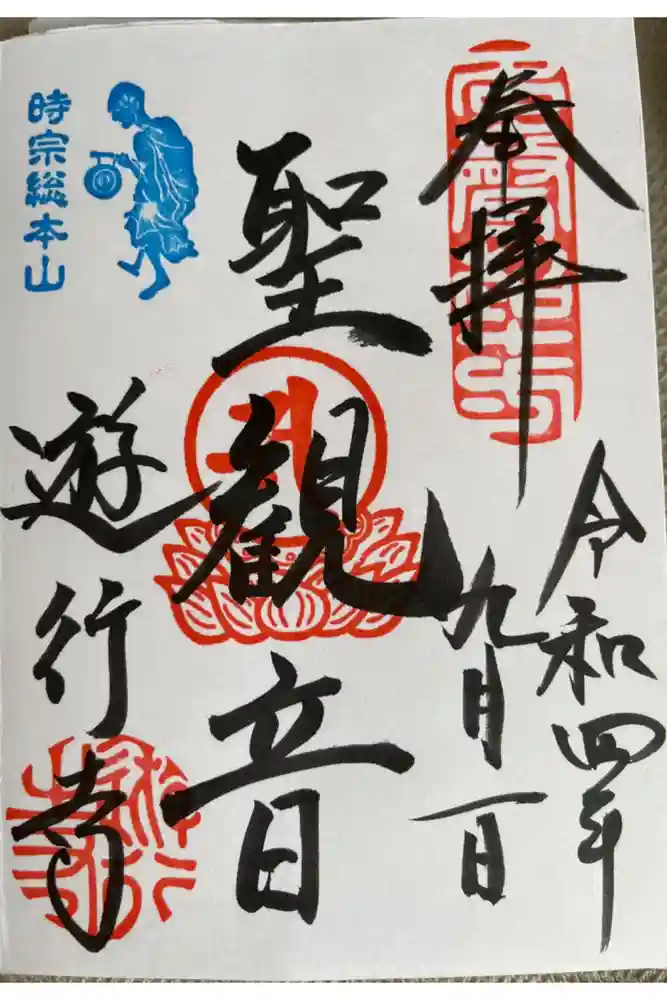 奉拝
令和四年
九月一日
聖観音
遊行寺
時宗総本山